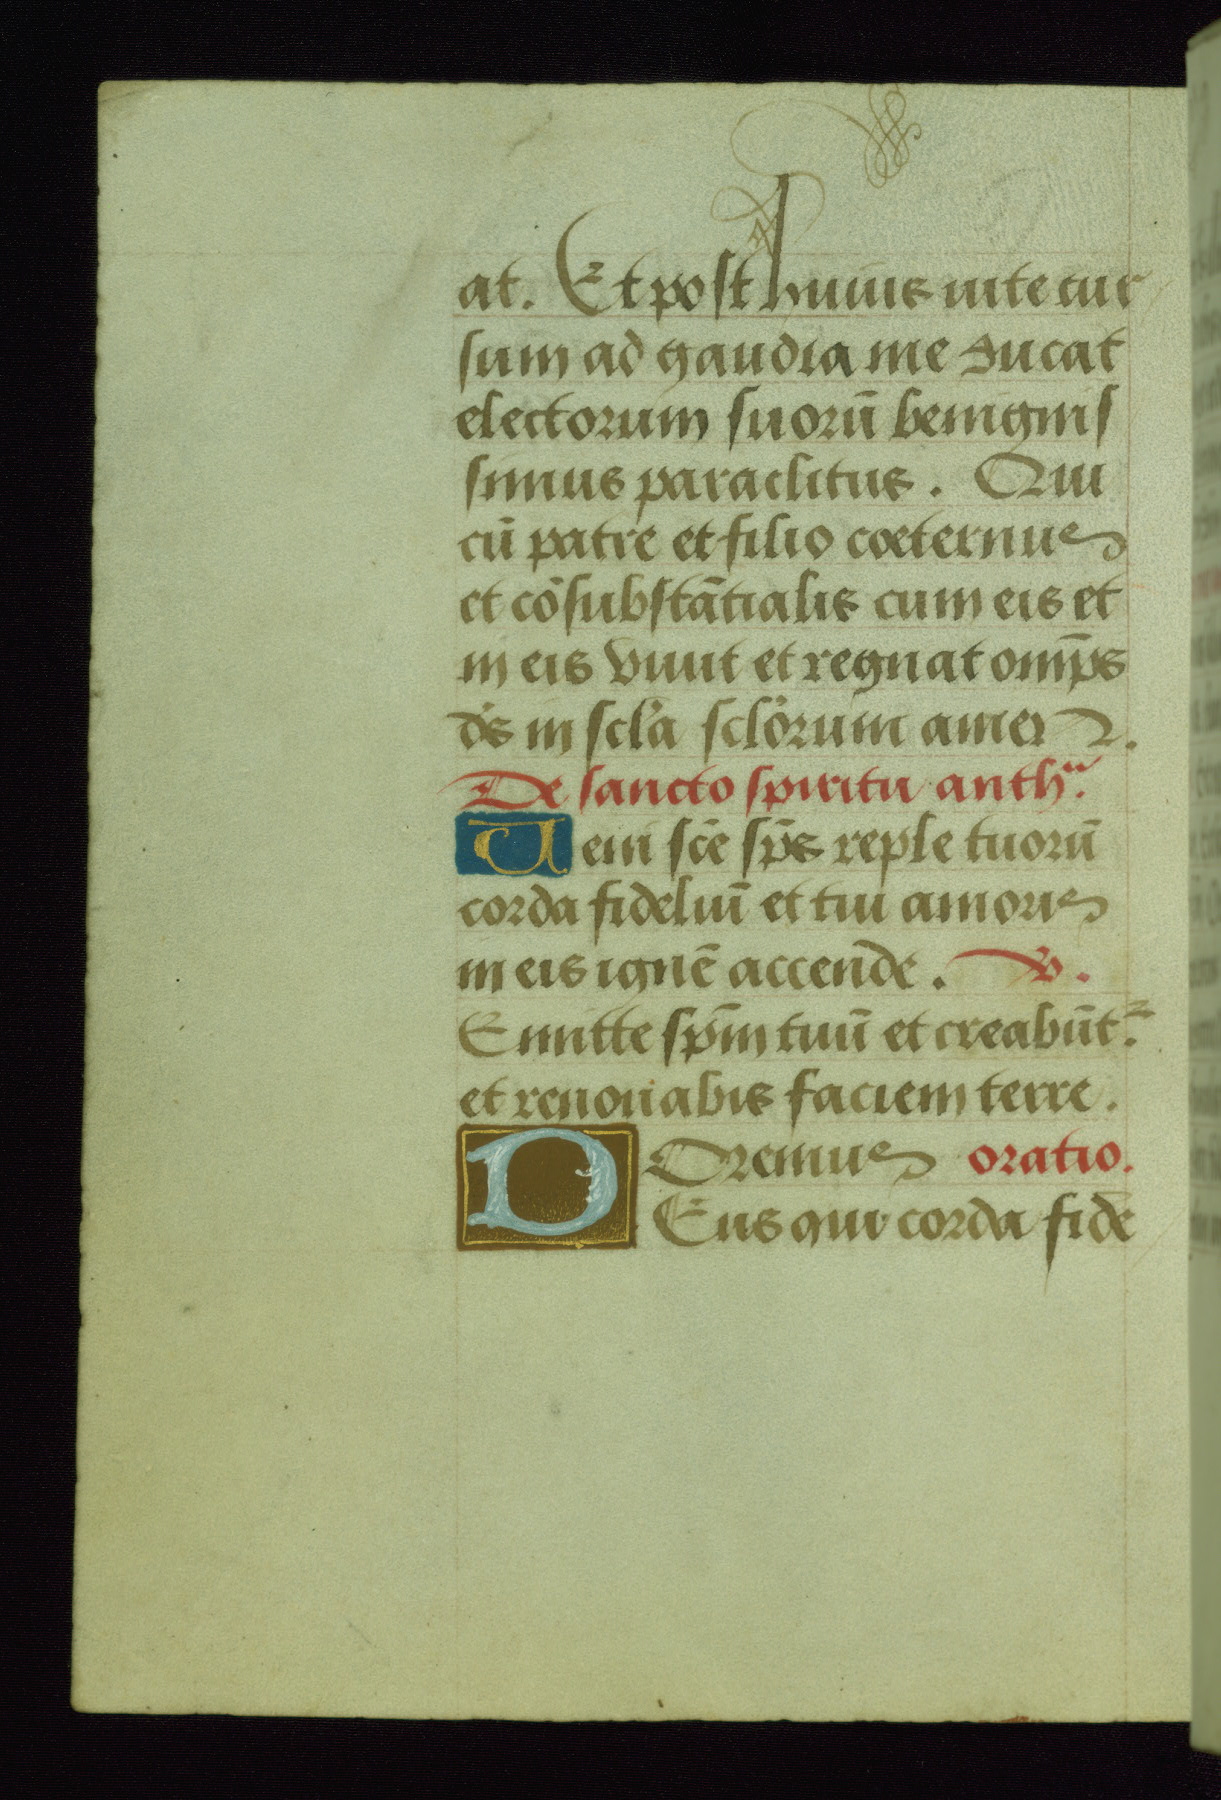 at. Et post huius uite cur
sum ad gaudia me ducat
electorum suorū benignis
simus paraclitus. Qui
cū patre et filio coeternus
et cōsubstātialis cum eis et
in eis viuit et regnat omp̄s
ds̄ in scl'a scl'orum amen.
De sancto spiritu anthᵃ.
Ueni scē sp̄s reple tuorū
corda fideliū et tui amoris
in eis ignē accende. V.
Emitte sp̄m tuū et creabūt.ᶻ
et renouabis faciem terre.
Oremus oratio.
DEus qui corda fide